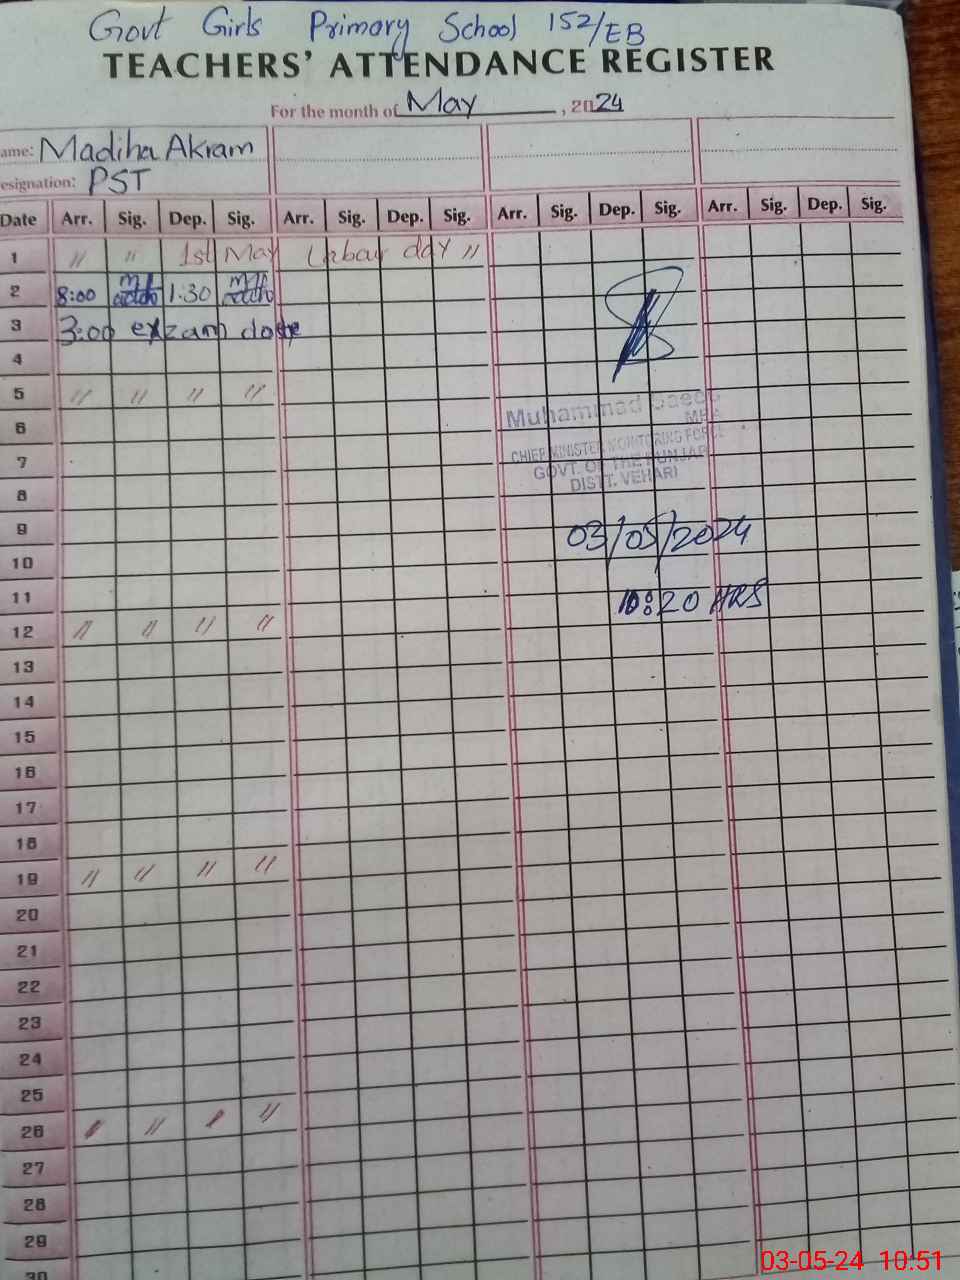 Govt Girls Primary School 152/EB
TEACHERS' ATTENDANCE REGISTER
For the month of May, 2024
ame: Madiha Akram
esignation: PST
Date Arr. Sig. Dep. Sig. Arr. Sig. Dep. Sig. Arr. Sig. Dep. Sig. Arr. Sig. Dep. Sig.
1 〃 〃 1st May Labour day 〃
2 8:00 1:30
3 3:00 exzam
4
5 〃 〃 〃 〃
Muhammad Saeed
MEA
6
CHIEF MINISTER MONITORING FORCE
7
GOVT. OF THE PUNJAB
DISTT. VEHARI
8
9 03/05/2024
10
11 10:20 HRS
12 〃 〃 〃 〃
13
14
15
16
17
18
19 〃 〃 〃 〃
20
21
22
23
24
25
26 〃 〃 〃 〃
27
28
29
30
03-05-24 10:51